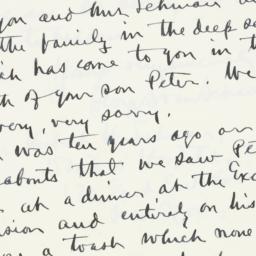 you and Mrs. Lehman
the family in the deep
has come to you in
of your son Peter. We
very, very sorry.
was ten years ago or
abouts that we saw
at a dinner at the
and entirely on his
a toast which none